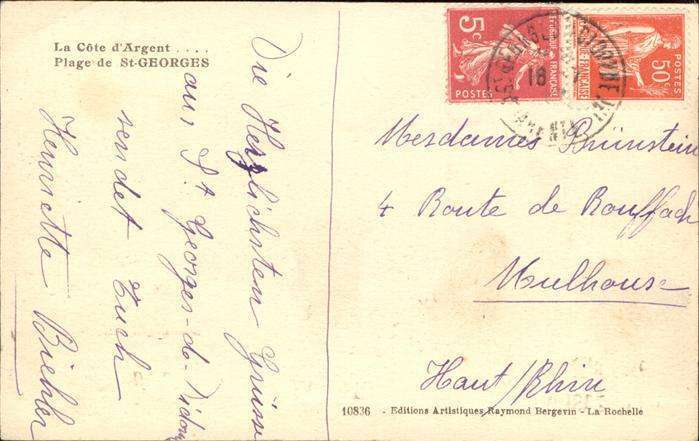 La Côte d'Argent ....
Plage de St-GEORGES
Die Herzlichsten Grüsse
aus St Georges-de-Didonne
sendet Euch
Henriette Biehler
5c
POSTES
50c
18
Mesdames Brünstein
4 Route de Rouffach
Mulhouse
Haut/Rhin
10836 - Editions Artistiques Raymond Bergevin - La Rochelle